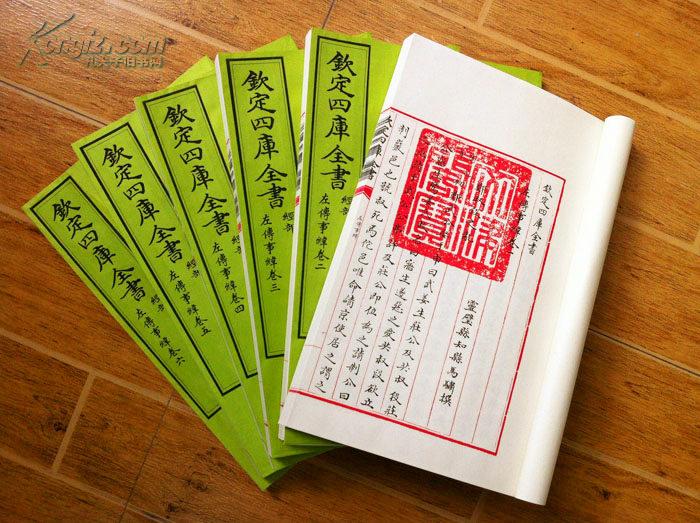 Kongfz.com
孔夫子旧书网
欽定四庫全書
經部
左傳事緯卷六
欽定四庫全書
經部
左傳事緯卷五
欽定四庫全書
經部
左傳事緯卷四
欽定四庫全書
經部
左傳事緯卷三
欽定四庫全書
經部
左傳事緯卷二
欽定四庫全書
左傳事緯卷一
靈璧縣知縣馬驌撰
曰武姜生莊公及共叔段莊
寤生遂惡之愛共叔段欲立
及莊公即位為之請制公曰
制巖邑也虢叔死焉佗邑唯命請京使居之謂之
欽定四庫全書